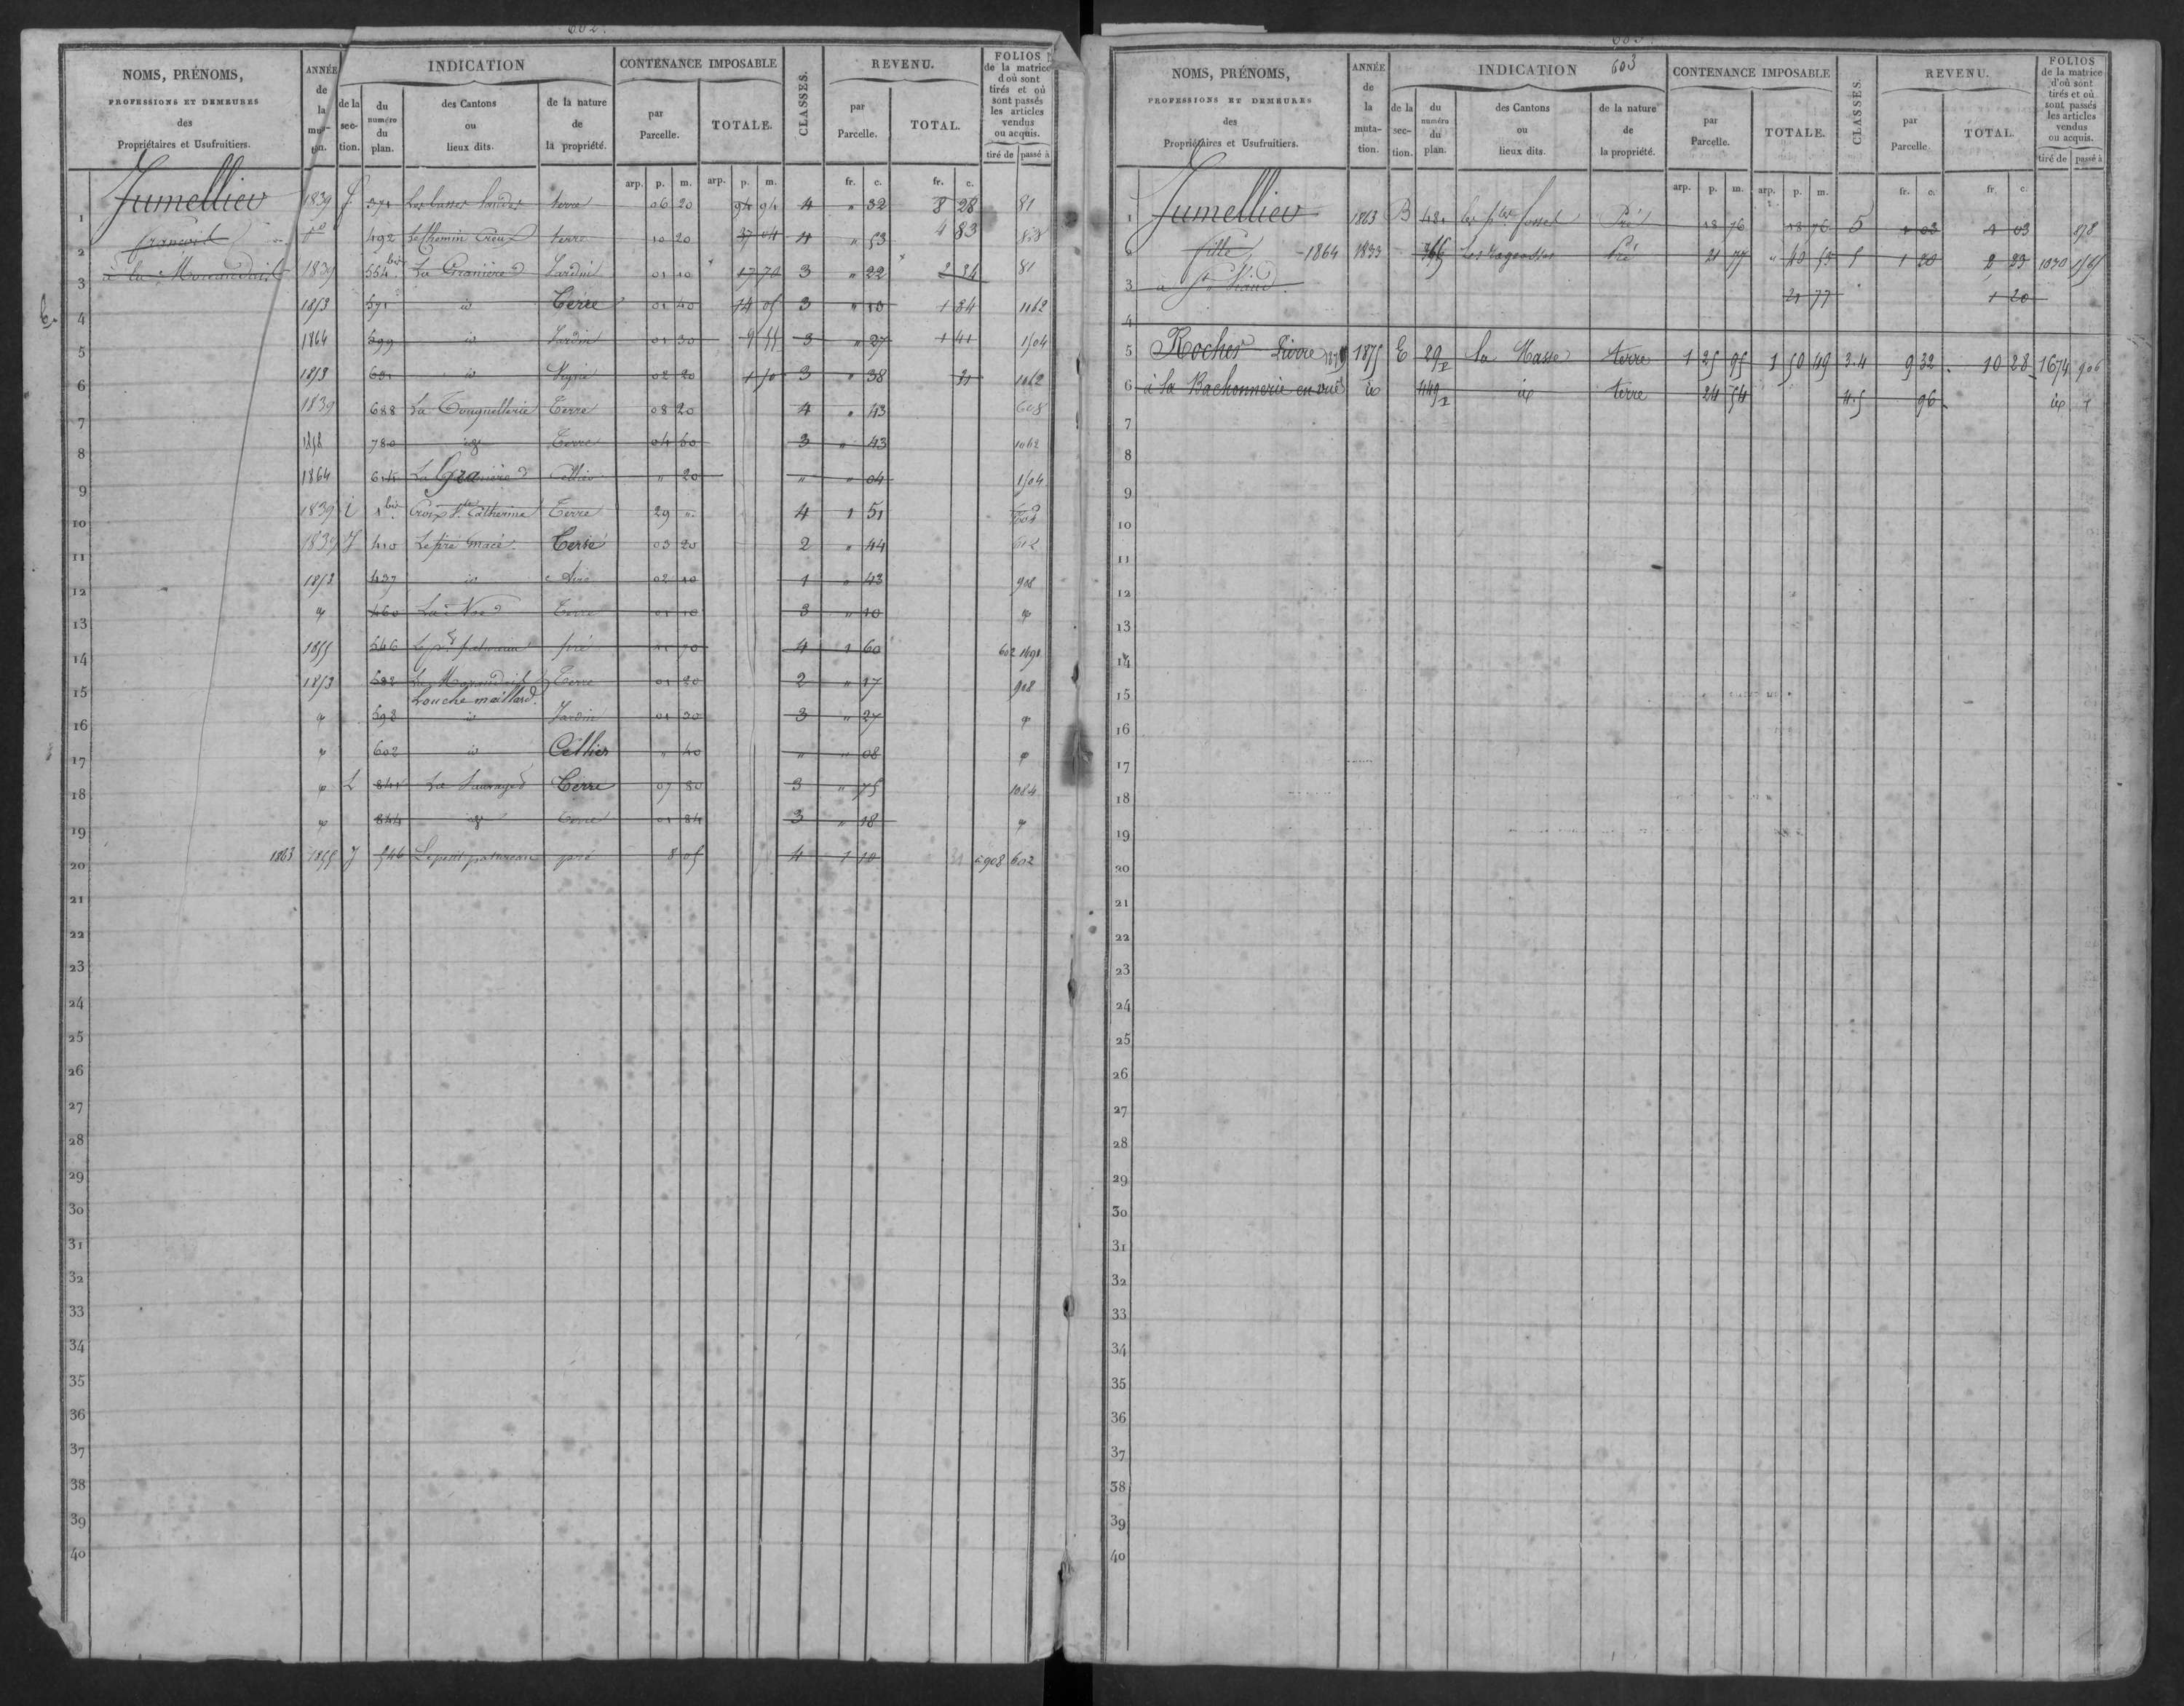 602.
NOMS, PRÉNOMS, PROFESSIONS ET DEMEURES des Propriétaires et Usufruitiers.
ANNÉE de la muta- tion.
INDICATION
de la sec- tion.
du numéro du plan.
des Cantons ou lieux dits.
de la nature de la propriété.
CONTENANCE IMPOSABLE
par Parcelle.
TOTALE.
CLASSES.
REVENU.
par Parcelle.
TOTAL.
FOLIOS de la matrice d'où sont tirés et où sont passés les articles vendus ou acquis.
tiré de passé à
arp. p. m. arp. p. m. fr. c. fr. c.
1 Jumellier 1839 371 Les basses landes terre 06 20 94 94 4 " 32 8 28 81
2 d° 492 Le Chemin Creux terre 10 20 37 04 4 " 53 4 83
3 à la 1839 554 bis La Jardin 01 10 17 74 3 " 22 2 84 81
4 1853 571 id Terre 01 40 14 05 3 " 10 1 84 1062
5 1864 599 id Jardin 01 30 9 55 3 " 27 1 41 1504
6 1853 id Vigne 02 20 1 50 3 " 38 31 1062
7 1839 688 La Terre 08 20 4 " 43 608
8 1858 780 id Terre 04 60 3 " 43 1062
9 1864 La Cellier " 20 " " 04 1504
10 1839 i 1 bis Croix Ste Catherine Terre 29 " 4 1 51
11 1839 J 410 Le pré macé Terre 03 20 2 " 44 602
12 1853 437 id 02 10 1 " 43 908
13 460 La Noe Terre 01 10 3 " 10
14 1855 546 Le pt patureau pré 4 1 60 602 1691
15 1853 Terre 01 20 2 " 17 908
Louche maillard
16 598 id Jardin 01 30 3 " 27
17 602 id Cellier " 40 " " 08
18 L 841 La Sauvage Terre 07 80 3 " 75 1084
19 844 id Terre 01 84 3 " 18
20 1863 1855 J 546 Le petit patureau pré 8 05 4 1 10 908 602
21
22
23
24
25
26
27
28
29
30
31
32
33
34
35
36
37
38
39
40
603
NOMS, PRÉNOMS, PROFESSIONS ET DEMEURES des Propriétaires et Usufruitiers.
ANNÉE de la muta- tion.
INDICATION 603
de la sec- tion.
du numéro du plan.
des Cantons ou lieux dits.
de la nature de la propriété.
CONTENANCE IMPOSABLE
par Parcelle.
TOTALE.
CLASSES.
REVENU.
par Parcelle
TOTAL.
FOLIOS de la matrice d'où sont tirés et où sont passés les articles vendus ou acquis.
tiré de passé à
arp. p. m. arp. p. m. fr. c. fr. c.
1 Jumellier 1863 B 481 Pré 18 76 18 76 5 1 03 1 03 878
2 fille 1864 1833 366 Les Pré 21 77 " 40 53 5 1 20 2 23 1030 1565
3 à St Viaud 21 77 1 20
4
5 Rocher Pierre 1875 E 29 la Masse terre 1 25 95 1 50 49 3.4 9 32 10 28 1674 906
6 à la Bachonnerie en vue id 449 id terre 24 54 4.5 96 id
7
8
9
10
11
12
13
14
15
16
17
18
19
20
21
22
23
24
25
26
27
28
29
30
31
32
33
34
35
36
37
38
39
40